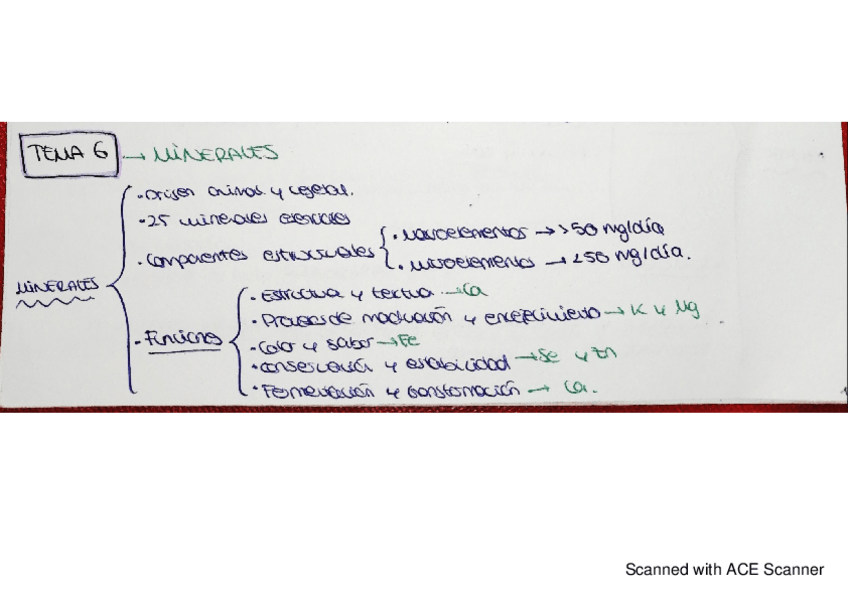 TEMA 6 → MINERALES
MINERALES
• Origen animal y vegetal.
• 25 minerales esenciales
• Componentes estructurales
• Macroelementos → >50 mg/día
• Microelementos → <50 mg/día.
• Funciones
• Estructura y textura → Ca
• Procesos de maduración y envejecimiento → K y Mg
• Color y sabor → Fe
• Conservación y estabilidad → Se y Zn
• Fermentación y transformación → Ca.
Scanned with ACE Scanner